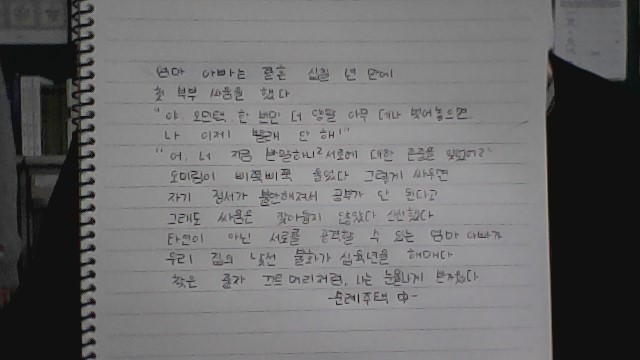 엄마 아빠는 결혼 십칠 년 만에
첫 부부 싸움을 했다
"야, 오민택, 한 번만 더 양말 아무 데나 벗어놓으면
나 이제 빨래 안 해!"
"어, 너 지금 반말하니? 서로에 대한 존중을 잊었어?
오미림이 삐쭉삐쭉 울었다 그렇게 싸우면
자기 정서가 불안해져서 공부가 안 된다고
그래도 싸움은 잦아들지 않았다 신선했다
타인이 아닌 서로를 공격할 수 있는 엄마 아빠가
우리 집의 낯선 불화가 십육년을 해매다
찾은 출가 끄트머리처럼, 나는 눈물나게 반가웠다
-순례주택 中-